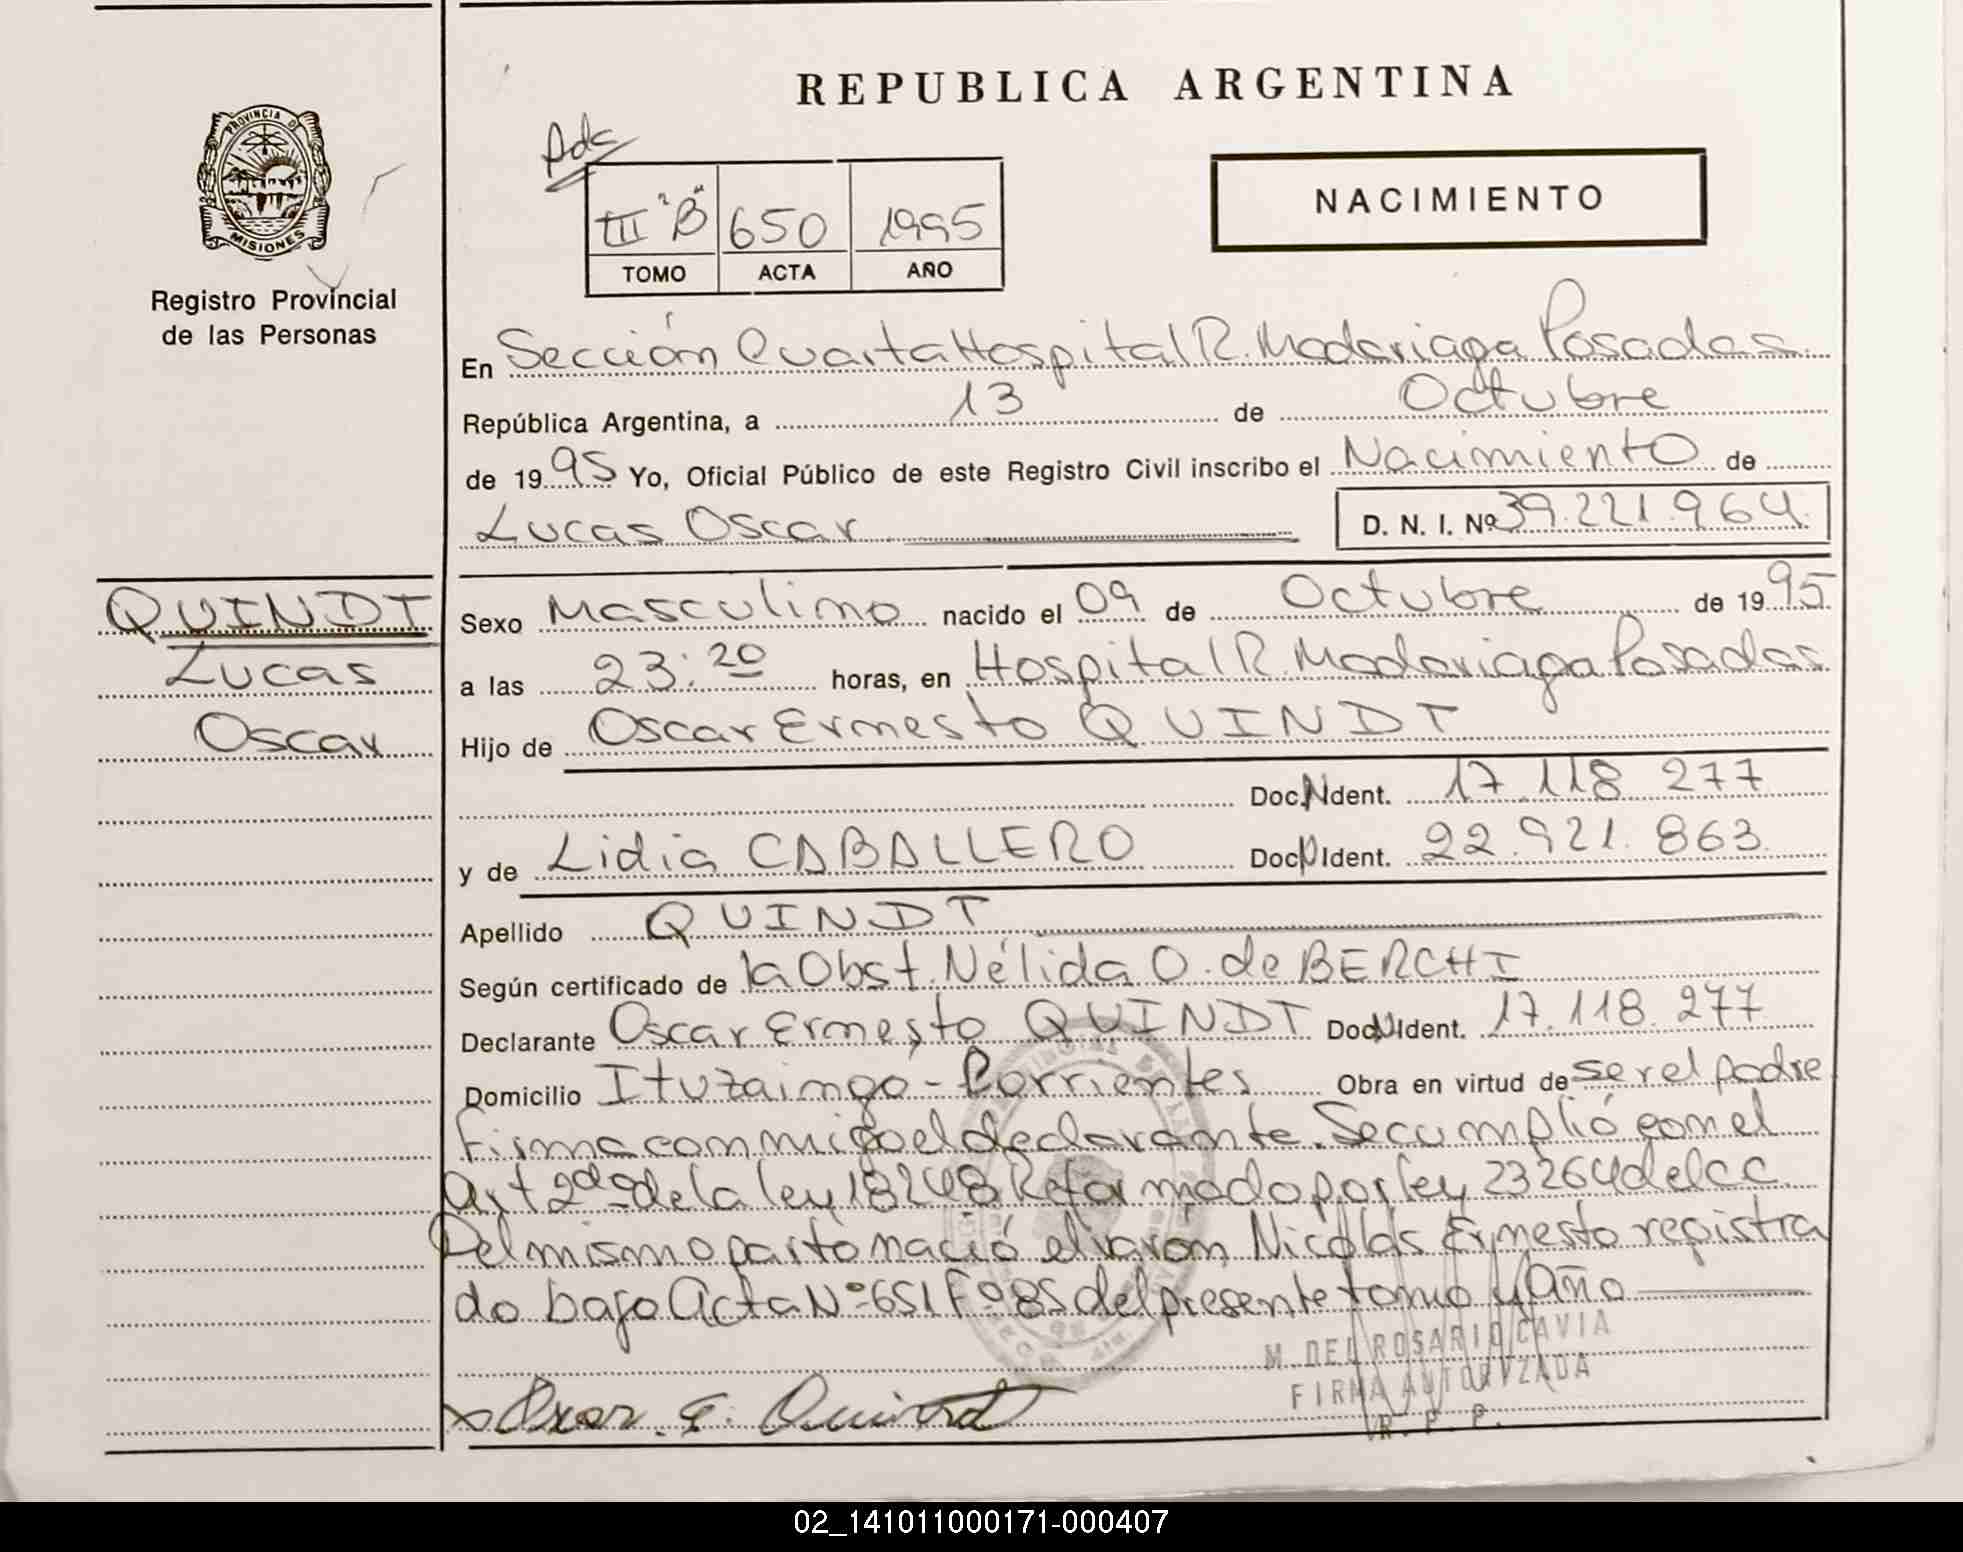 REPUBLICA ARGENTINA
PROVINCIA D
MISIONES
Registro Provincial
de las Personas
Ads
III "B" 650 1995
TOMO ACTA AÑO
NACIMIENTO
En Sección Cuarta Hospital R. Madariaga Posadas.
República Argentina, a 13 de Octubre
de 1995 Yo, Oficial Público de este Registro Civil inscribo el Nacimiento de
Lucas Oscar D. N. I. Nº 39.221.964.
QUINDT
Lucas
Oscar
Sexo Masculino nacido el 09 de Octubre de 1995.
a las 23:20 horas, en Hospital R. Madariaga Posadas.
Hijo de Oscar Ernesto QUINDT
Doc.NIdent. 17.118 277
y de Lidia CABALLERO Doc.NIdent. 22.921.863.
Apellido QUINDT
Según certificado de la Obst. Nélida O. de BERCHI
Declarante Oscar Ernesto QUINDT Doc.NIdent. 17.118.277
Domicilio Ituzaingo - Corrientes Obra en virtud de ser el padre
firma conmigo el declarante. Se cumplió con el
Art 2do de la ley 18248 Reformado por ley 23264 del C C.
Del mismo parto nació el varón, Nicolás Ernesto registra
do bajo Acta Nº 651 Fº 85 del presente tomo y Año
M. DEL ROSARIO CAVIA
FIRMA AUTORIZADA
R. P. P.
Oscar. E. Quindt
02_141011000171-000407